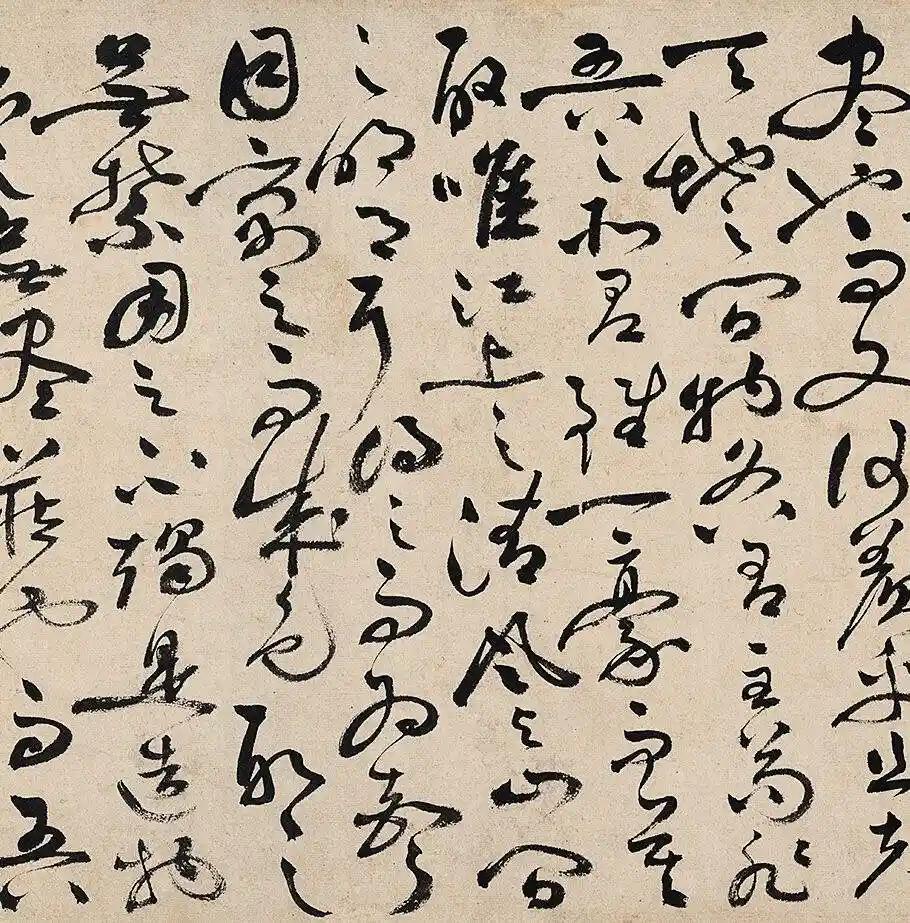 盡也而又何羨乎且夫
天地之間物各有主苟非
吾之所有雖一豪而莫
取唯江上之清風與山間
之明月耳得之而為聲
目寓之而成色取之
無禁用之不竭是造物
者之無盡藏也而吾